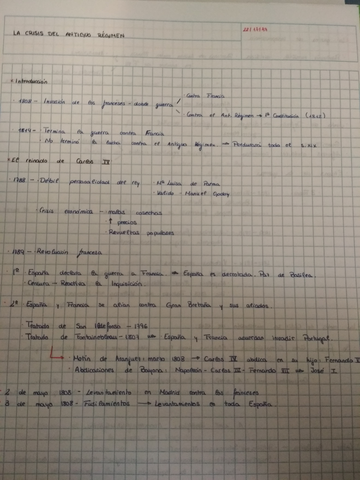 LA CRISIS DEL ANTIGUO RÉGIMEN
Introducción
1808 - Invasión de los franceses - doble guerra
Contra Francia
Contra el Ant. Régimen → 1ª Constitución (1812)
1814 - Termina la guerra contra Francia
No termina la lucha contra el Antiguo Régimen → Perdurará todo el S. XIX
El reinado de Carlos IV
1788 - Débil personalidad del rey
Mª Luisa de Parma
Valido - Manuel Godoy
Crisis económica - malas cosechas
↑ precios
Revueltas populares
Revolución francesa
1º España declara la guerra a Francia → España es derrotada. Paz de Basilea
Censura → Reactiva la Inquisición
2º España y Francia se alían contra Gran Bretaña y sus aliados.
Tratado de San Ildefonso - 1796
Tratado de Fontainebleau - → España y Francia acuerdan invadir Portugal
Motín de Aranjuez: marzo 1808 → Carlos IV abdica en su hijo: Fernando
Abdicaciones de Bayona: Napoleón - Carlos IV - Fernando → José I
2 de mayo 1808 - Levantamiento en Madrid contra los franceses
3 de mayo 1808 - Fusilamientos → Levantamientos en toda España